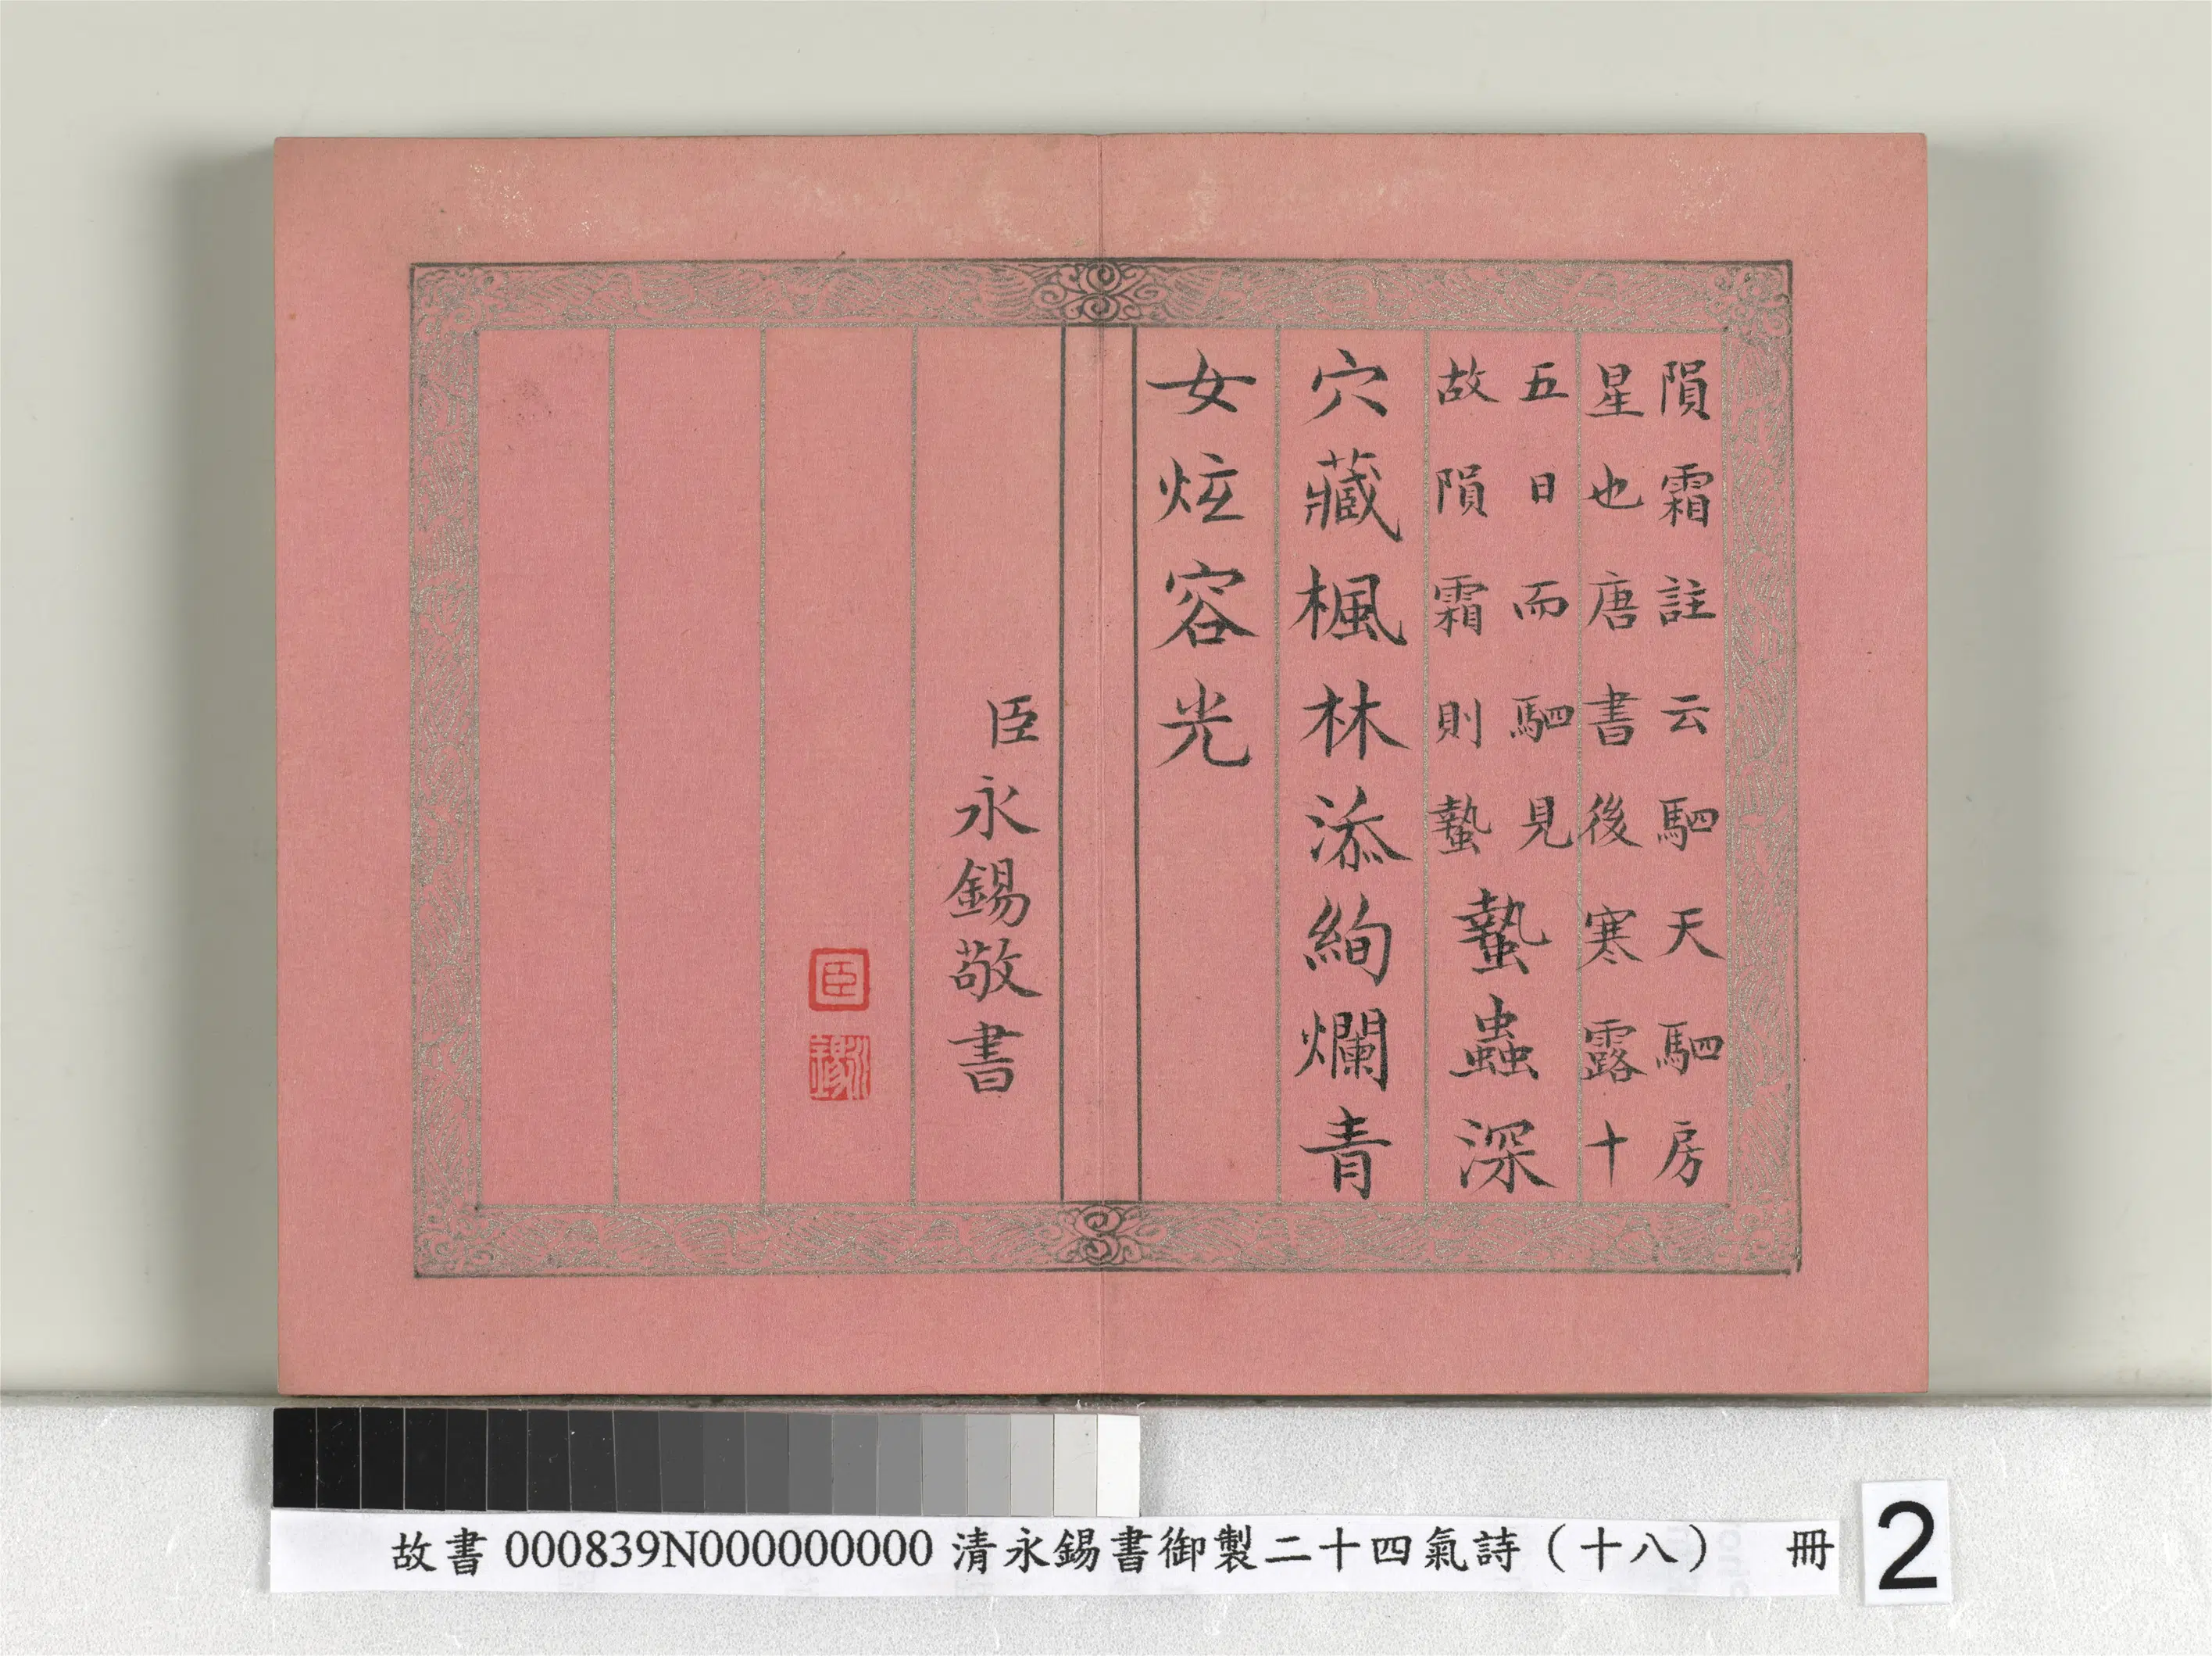 隕霜註云駟天駟房
星也唐書後寒露十
五日而駟見
故隕霜則蟄
蟄蟲深
穴藏楓林添絢爛青
女炫容光
臣永錫敬書
臣
故書 000839N000000000 清永錫書御製二十四氣詩（十八） 冊
2